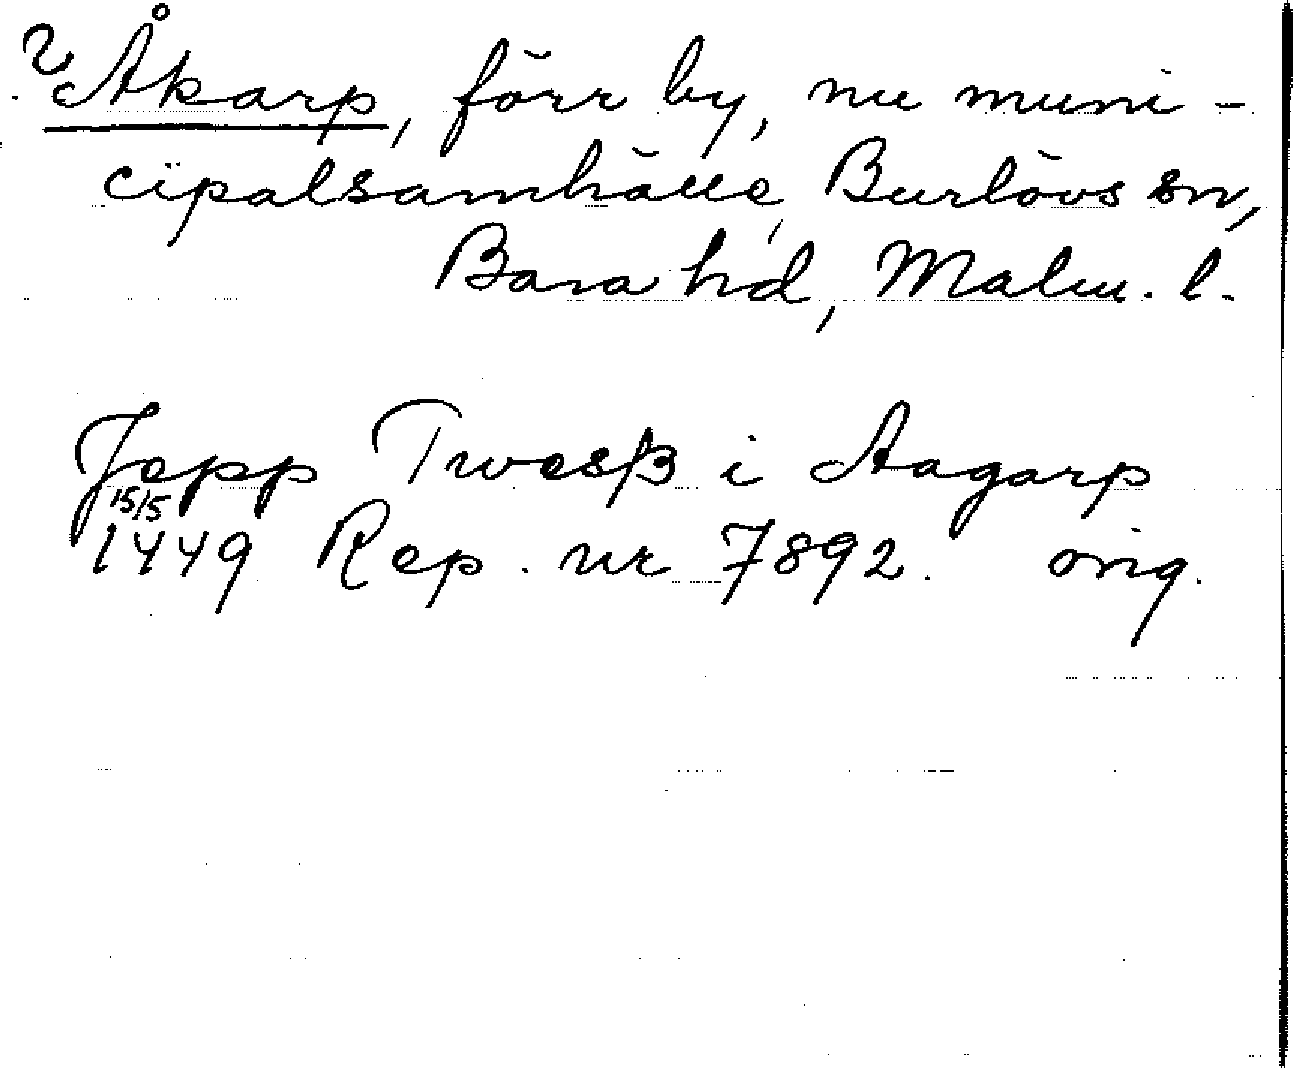 ? Åkarp, förr by, nu muni-
cipalsamhälle, Burlövs sn,
Bara hd, Malm. l.
Jepp Twesß i Aagarp
15/5
1449 Rep. nr 7892. orig.